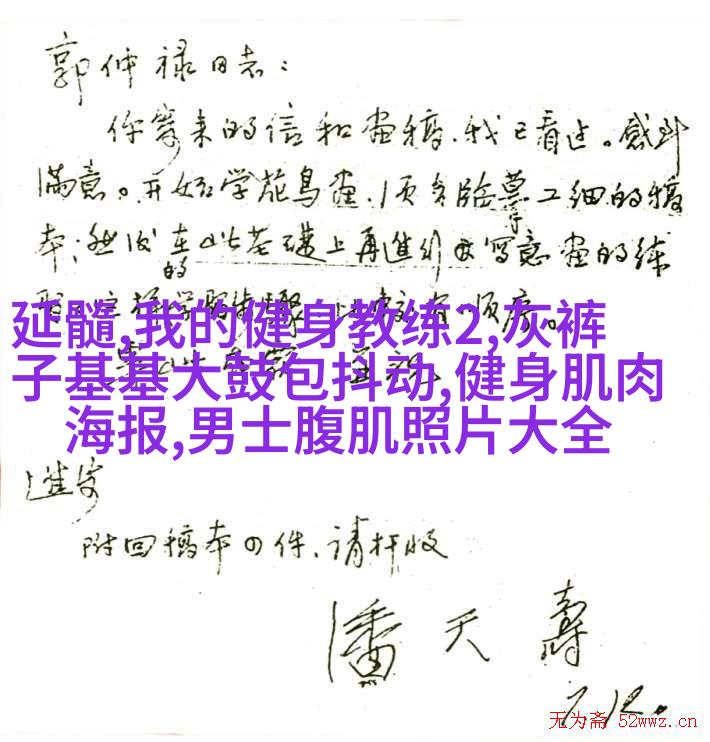 郭仲禄同志：
你寄来的信和画稿，我已看过。感到
满意。开始学花鸟画，须多临摹工细的稿
本；然后在此基础上再进行写意画的练
的
延髓,我的健身教练2,灰裤
子基基大鼓包抖动,健身肌肉
海报,男士腹肌照片大全
进安
附回稿本四件，请检收
潘天寿
7.12.
无为斋 52wwz.cn